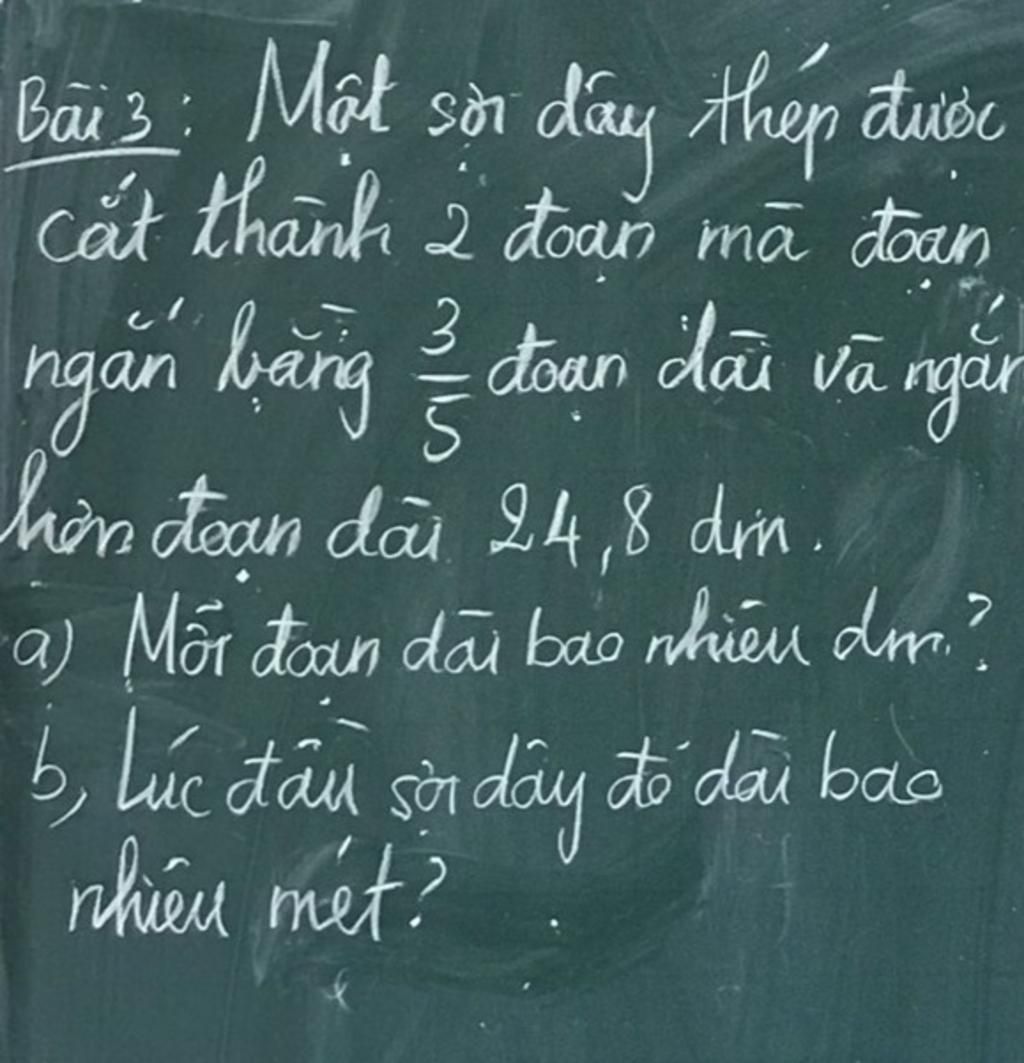 Bài 3: Một sợi dây thép được
cắt thành 2 đoạn mà đoạn
ngắn bằng 3/5 đoạn dài và ngắn
hơn đoạn dài 24,8 dm.
a) Mỗi đoạn dài bao nhiêu dm?
b, Lúc đầu sợi dây đó dài bao
nhiêu mét?